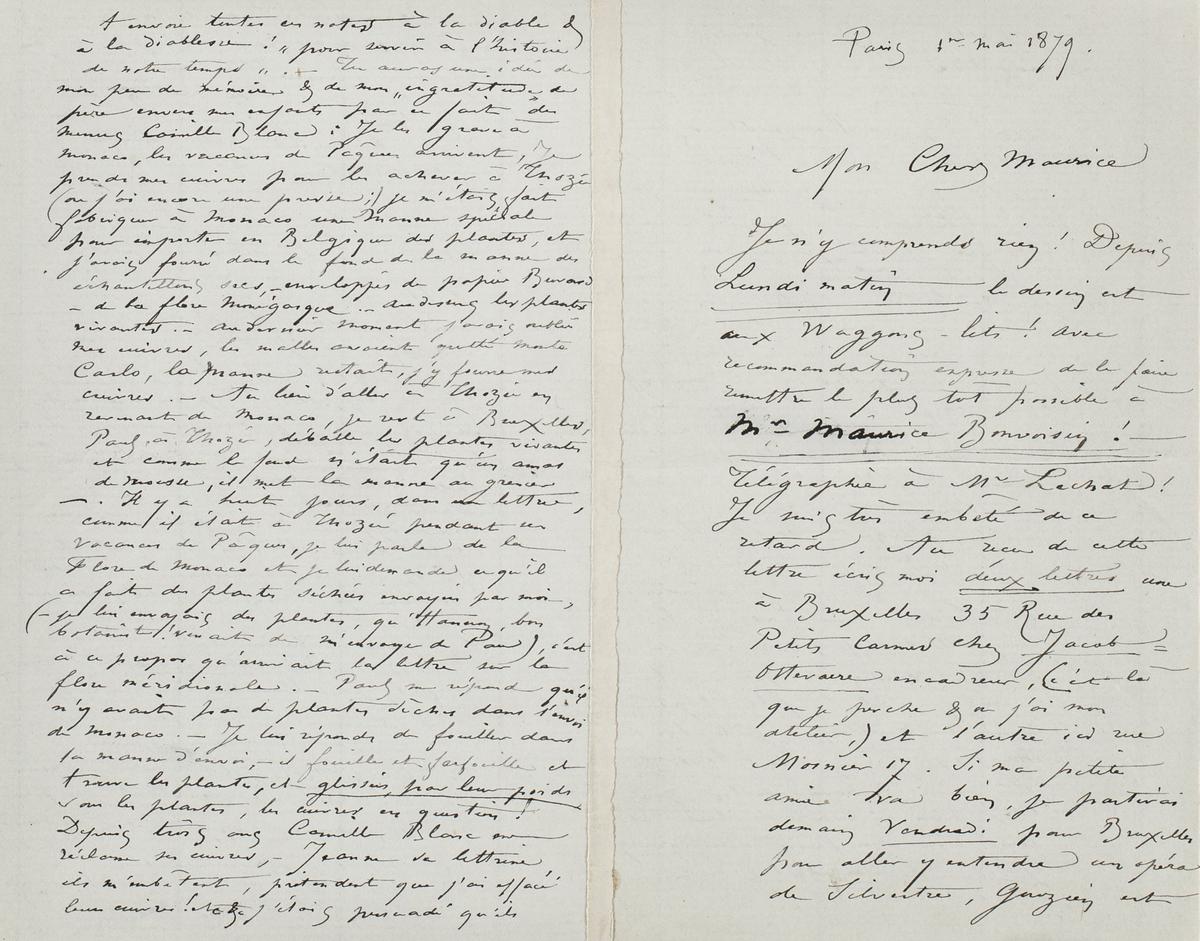 Paris 1er mai 1879.
Mon Cher Maurice
Je n'y comprends rien ! Depuis
Lundi matin le dessin est
aux Waggons-lits ! avec
recommandation expresse de le faire
remettre le plus tot possible à
Mr Maurice Bonvoisin ! —
Télégraphié à Mr Lechat !
Je suis très embêté de ce
retard. Au reçu de cette
lettre écris moi deux lettres une
à Bruxelles 35 Rue des
Petits Carmes chez Jacob =
Ottevaere encadreur, (c'est là
que je perche & où j'ai mon
atelier,) et l'autre ici rue
Mosnier 17. Si ma petite
amie va bien, je partirai
demain Vendredi pour Bruxelles
pour aller y entendre un opéra
de Silvestre, Gouzien est
t'envoie toutes ces notes à la diable &
à la diablesse ! „ pour servir à l'histoire
de notre temps „. — Tu auras une idée de
mon peu de mémoire & de mon „ ingratitude de
père envers mes enfants par ce fait des
menus Camille Blanc : Je les grave à
Monaco, les vacances de Pâques arrivent, Je
prends mes cuivres pour les achever à Thozée
(où j'ai encore une presse ;) je m'étais fait
fabriquer à Monaco une Manne spéciale
pour importer en Belgique des plantes, et
j'avais fourré dans le fond de la manne des
échantillons secs, enveloppés de papier Buvard
– de la flore Monégasque. – au dessus les plantes
vivantes. – au dernier moment j'avais oublié
mes cuivres, les malles avaient quitté Monte
Carlo, la Manne restait, j'y fourre mes
cuivres. – Au lieu d'aller à Thozée en
revenant de Monaco, je reste à Bruxelles,
Paul, à Thozée, déballe les plantes vivantes
et comme le fond n'était qu'un amas
de mousse, il met la manne au grenier
—. Il y a huit jours, dans une lettre,
comme il était à Thozée pendant ces
vacances de Pâques, je lui parle de la
Flore de Monaco et je lui demande ce qu'il
a fait des plantes séchées envoyées par moi,
(– je lui envoyais des plantes, qu'Hannon, bon
botaniste venait de m'envoyer de Pau), c'est
à ce propos qu'arrivait la lettre sur la
flore méridionale. – Paul me répond qu'il
n'y avait pas de plantes sèches dans l'envoi
de Monaco. – Je lui réponds de fouiller dans
la manne d'envoi, – il fouille et farfouille et
trouve les plantes, et glissés, par leur poids
sous les plantes, les cuivres en question !
Depuis trois ans Camille Blanc me
réclame ses cuivres, – Jeanne sa lettrine
ils m'embêtent, prétendent que j'ai effacé
leurs cuivres ! et j'étais persuadé qu'ils